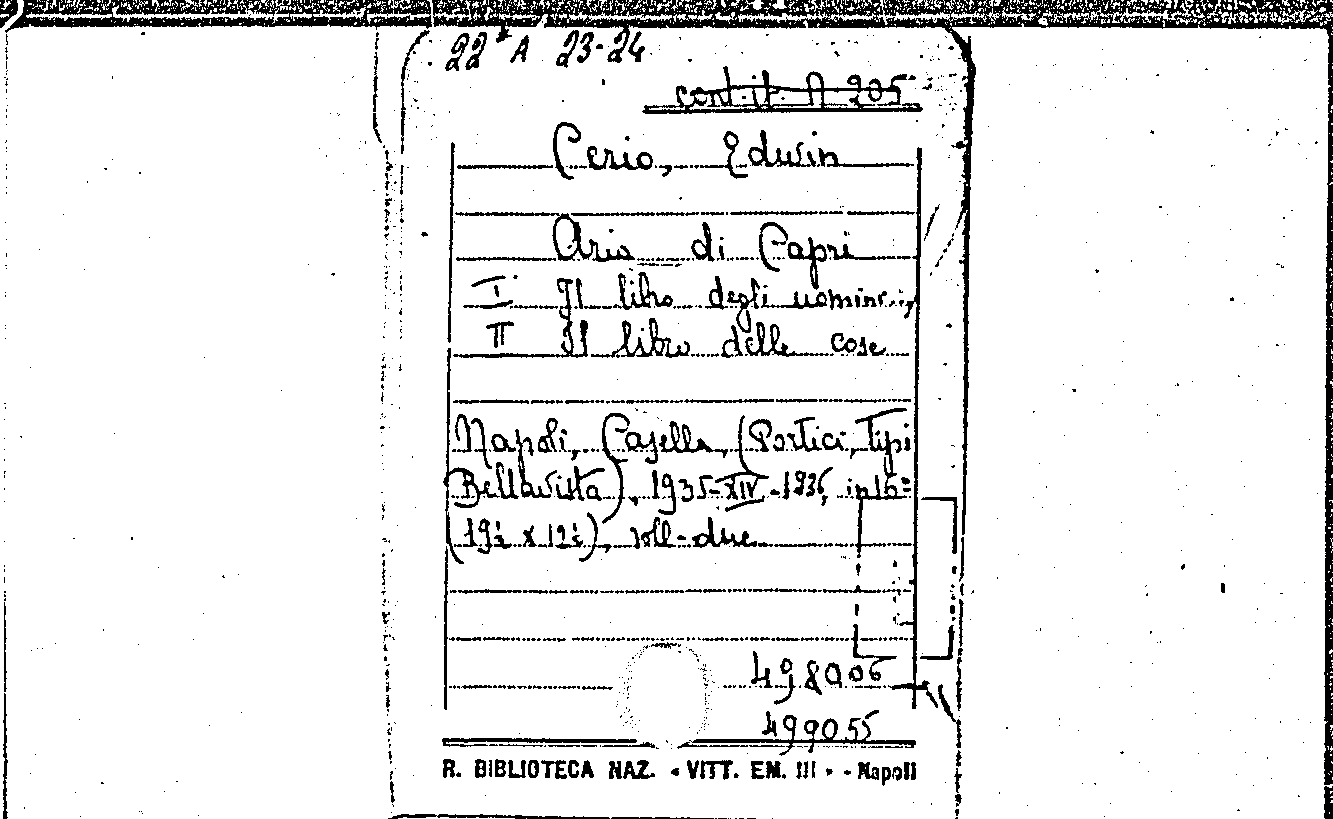 22ª A 23-24
cont. it. A 205
Cerio, Edwin
Aria di Capri
I Il libro degli uomini,
II Il libro delle cose
Napoli, Casella, (Portici, Tipi
Bellavista), 1935-XIV-1936, in 16°
(19½ x 12½), voll. due
498006
499055
R. BIBLIOTECA NAZ. « VITT. EM. III » - Napoli